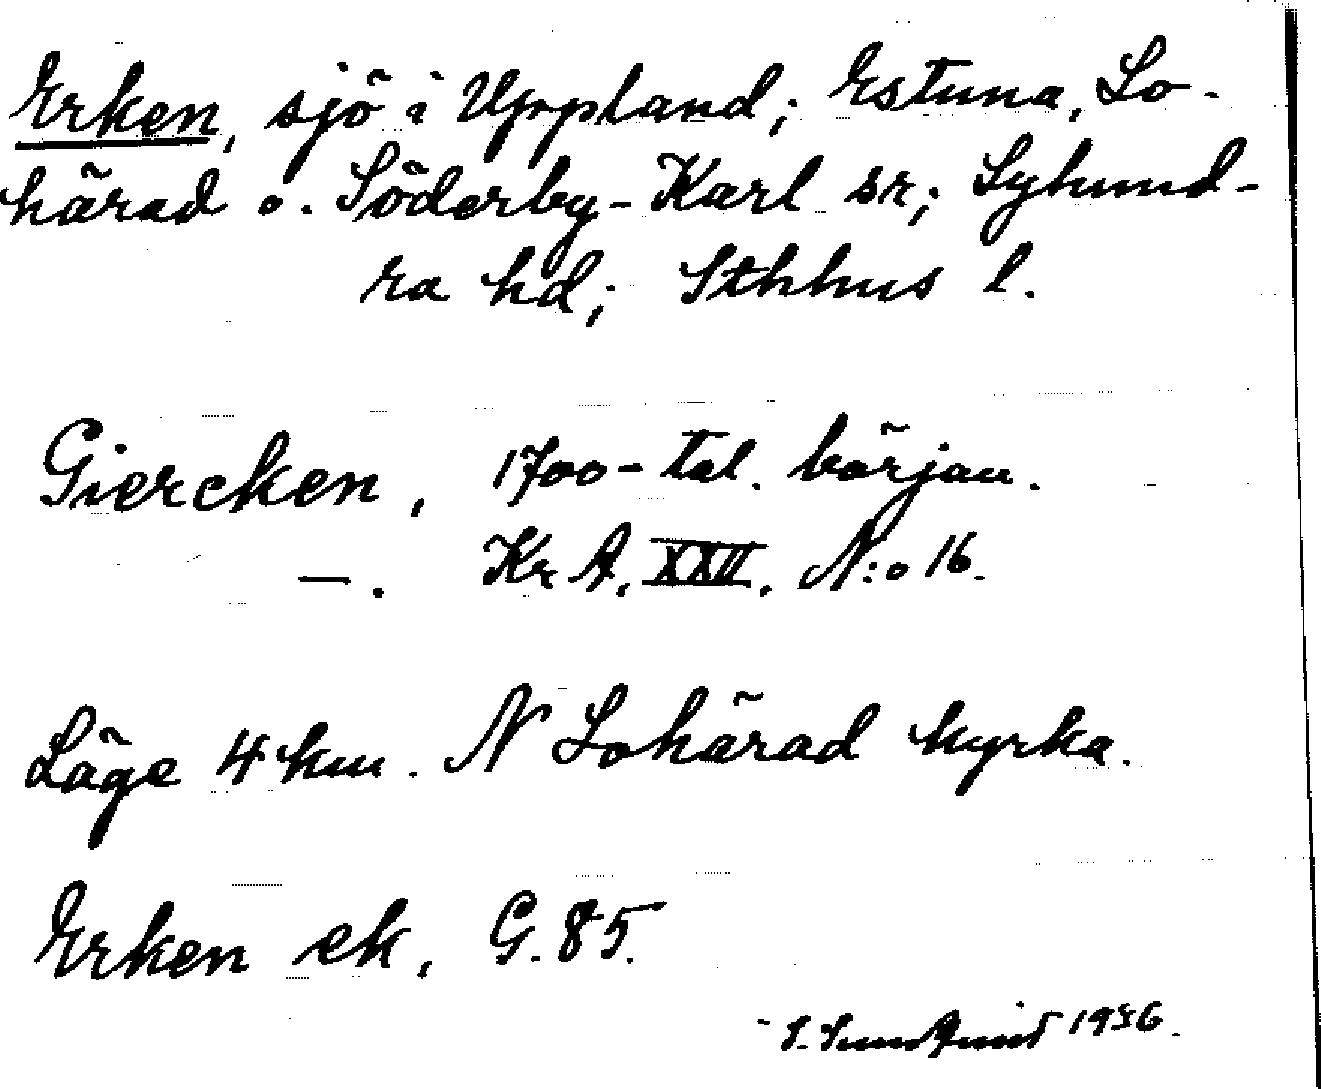 Erken, sjö i Uppland; Estuna, Lo-
härad o. Söderby-Karl sn; Lyhund-
ra hd; Sthlms l.
Giercken, 1700-tal. början.
—. Kr A. XXII. N:o 16.
Läge 4 km. N Lohärad kyrka.
Erken ek, G. 85.
S. Sundquist 1936.